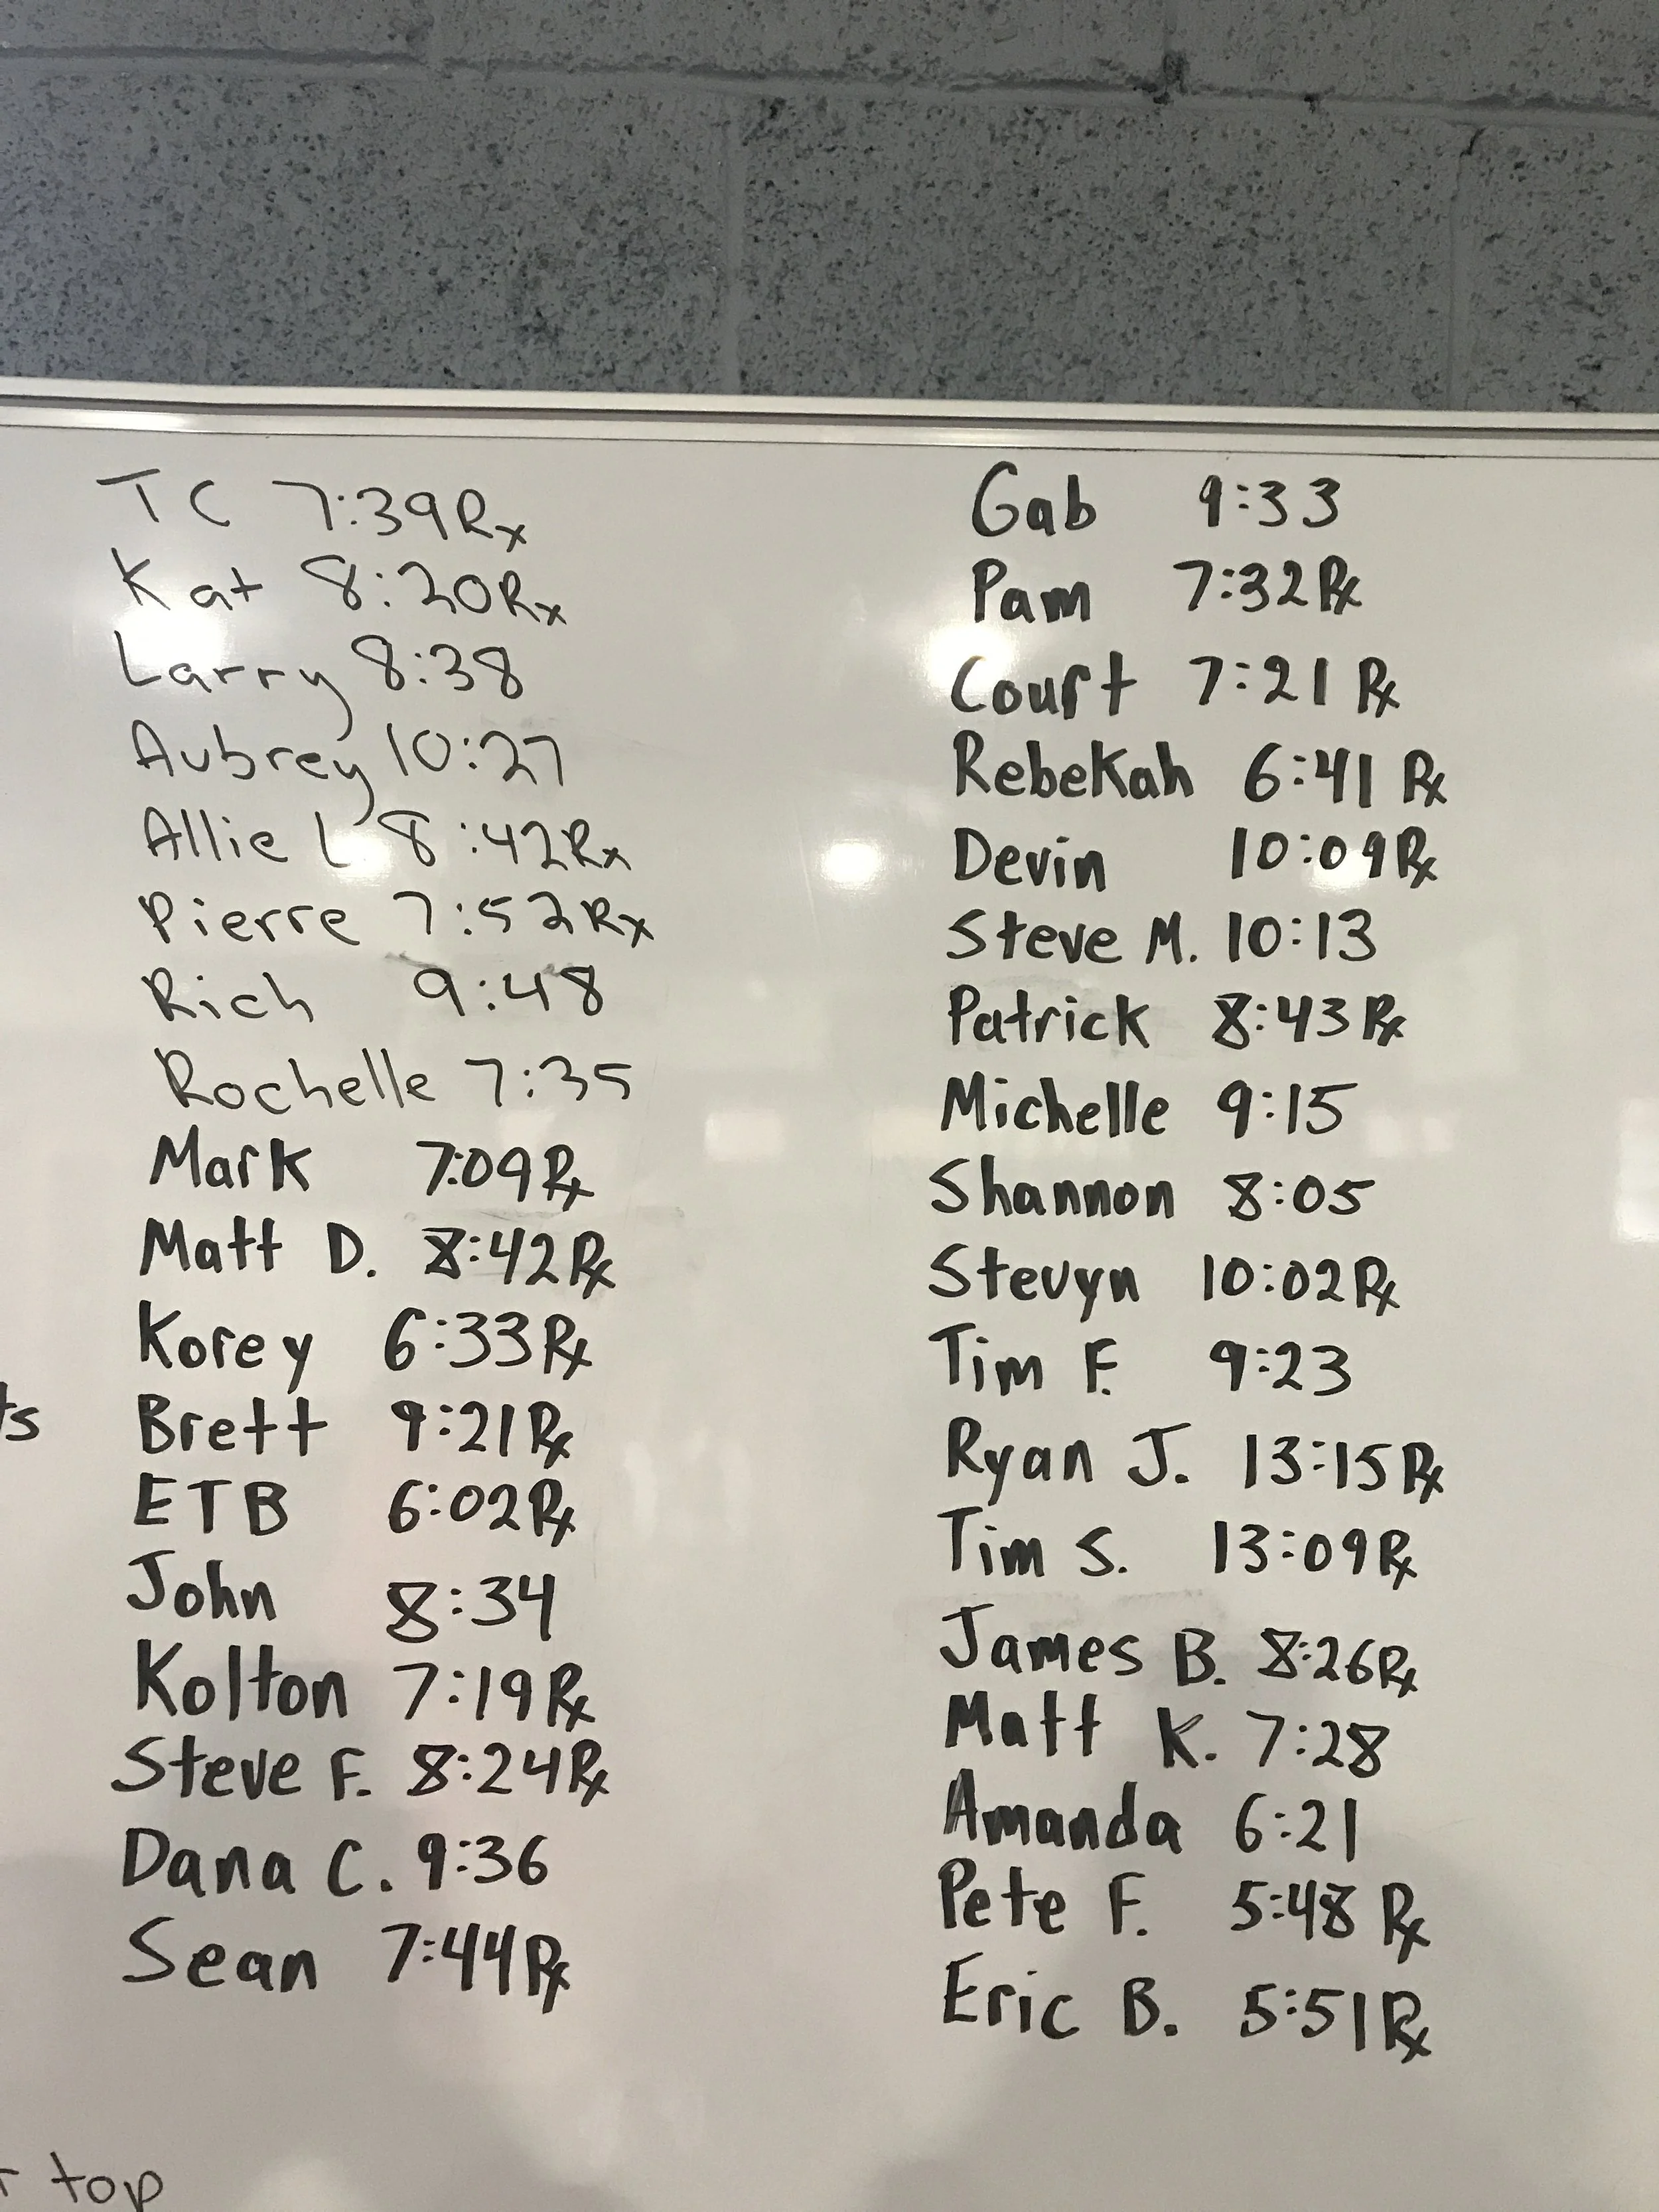 TC 7:39Rx
Kat 8:20Rx
Larry 8:38
Aubrey 10:27
Allie L 8:42Rx
Pierre 7:52Rx
Rich 9:48
Rochelle 7:35
Mark 7:09Rx
Matt D. 8:42Rx
Korey 6:33Rx
ts
Brett 9:21Rx
ETB 6:02Rx
John 8:34
Kolton 7:19Rx
Steve F. 8:24Rx
Dana C. 9:36
Sean 7:44Rx
top
Gab 9:33
Pam 7:32Rx
Court 7:21 Rx
Rebekah 6:41 Rx
Devin 10:09Rx
Steve M. 10:13
Patrick 8:43Rx
Michelle 9:15
Shannon 8:05
Stevyn 10:02Rx
Tim F. 9:23
Ryan J. 13:15Rx
Tim S. 13:09Rx
James B. 8:26Rx
Matt K. 7:28
Amanda 6:21
Pete F. 5:48 Rx
Eric B. 5:51Rx